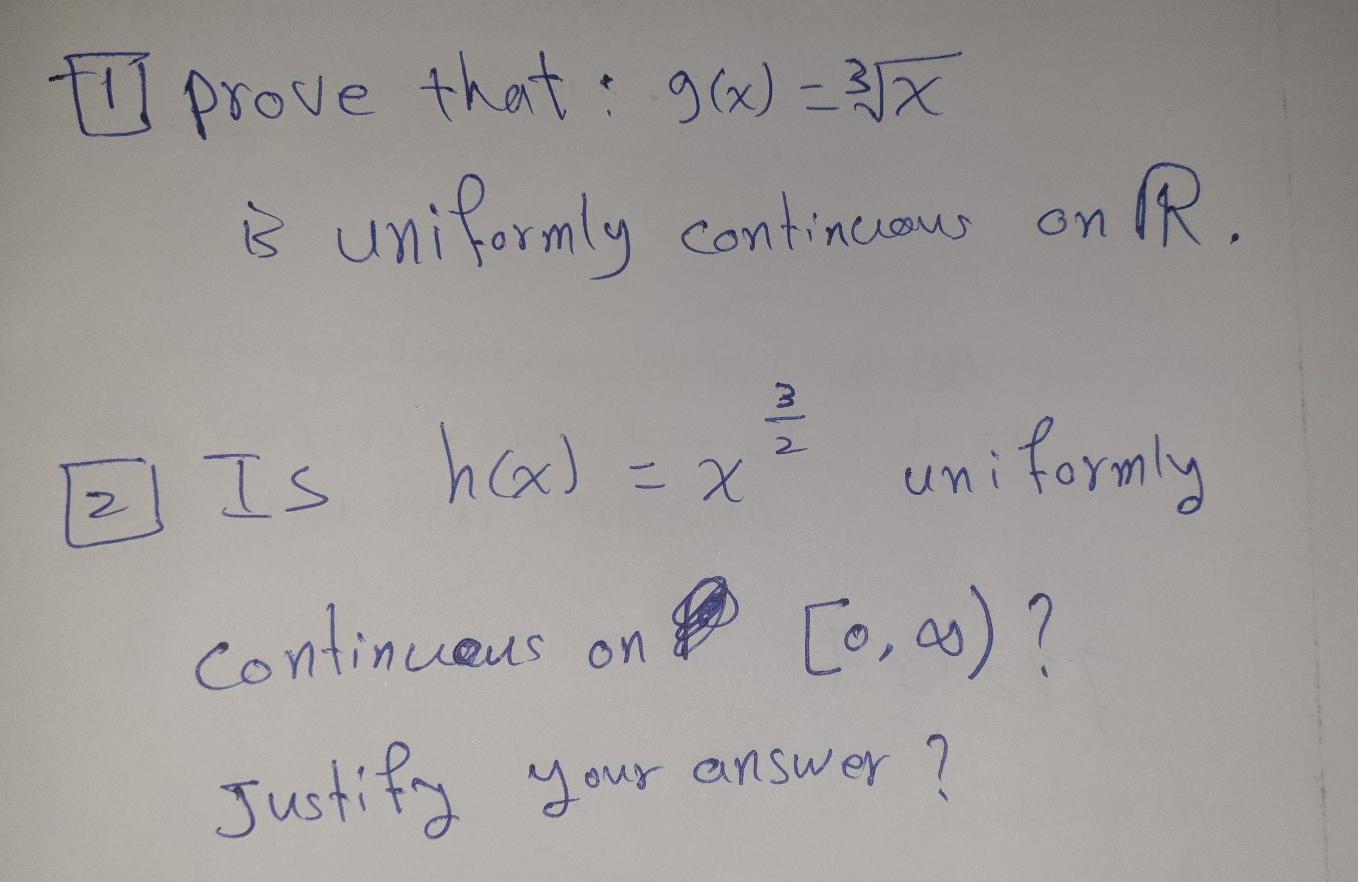 1 prove that : g(x) = ∛x
is uniformly continuous on ℝ.
2 Is h(x) = x^(3/2) uniformly
continuous on [0, ∞) ?
Justify your answer ?